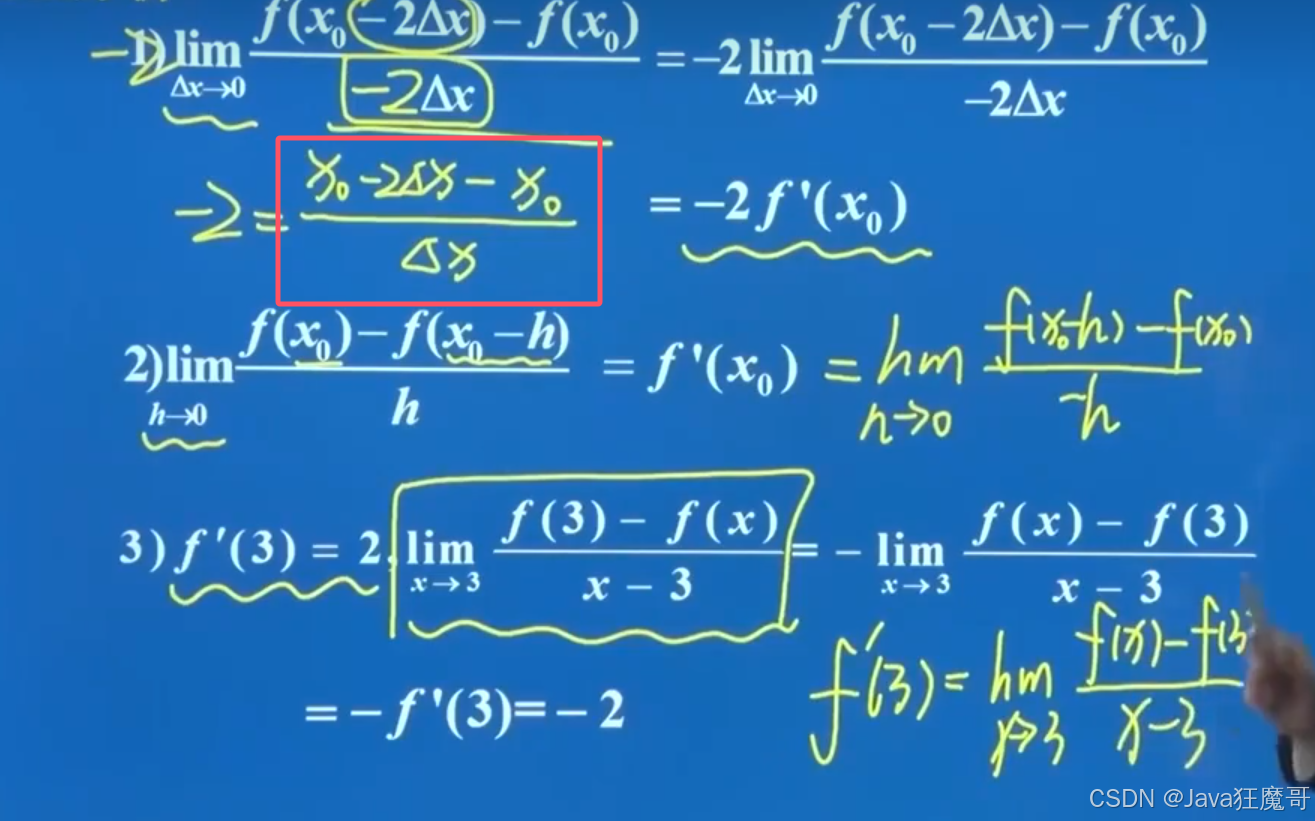 -2 1) lim_{Δx→0} \frac{f(x_0 -2Δx) - f(x_0)}{-2Δx} = -2 lim_{Δx→0} \frac{f(x_0 - 2Δx) - f(x_0)}{-2Δx}
-2 = \frac{x_0 - 2Δx - x_0}{Δx} = -2f'(x_0)
2) lim_{h→0} \frac{f(x_0) - f(x_0 - h)}{h} = f'(x_0) = lim_{h→0} \frac{f(x_0-h) - f(x_0)}{-h}
3) f'(3) = 2, lim_{x→3} \frac{f(3) - f(x)}{x - 3} = - lim_{x→3} \frac{f(x) - f(3)}{x - 3}
= -f'(3) = -2
f'(3) = lim_{x→3} \frac{f(x) - f(3}{x-3}
CSDN @Java狂魔哥